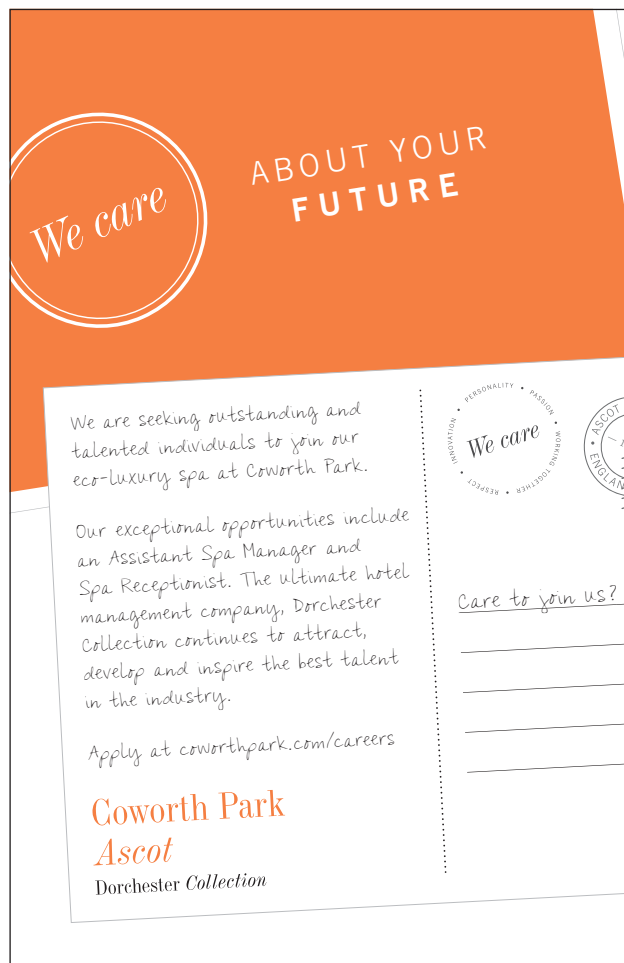 We care
ABOUT YOUR
FUTURE
We are seeking outstanding and
talented individuals to join our
eco-luxury spa at Coworth Park.
Our exceptional opportunities include
an Assistant Spa Manager and
Spa Receptionist. The ultimate hotel
management company, Dorchester
Collection continues to attract,
develop and inspire the best talent
in the industry.
Apply at coworthpark.com/careers
Coworth Park
Ascot
Dorchester Collection
PERSONALITY • PASSION • WORKING TOGETHER • RESPECT • INNOVATION •
We care
• ASCOT
ENGLAN
Care to join us?